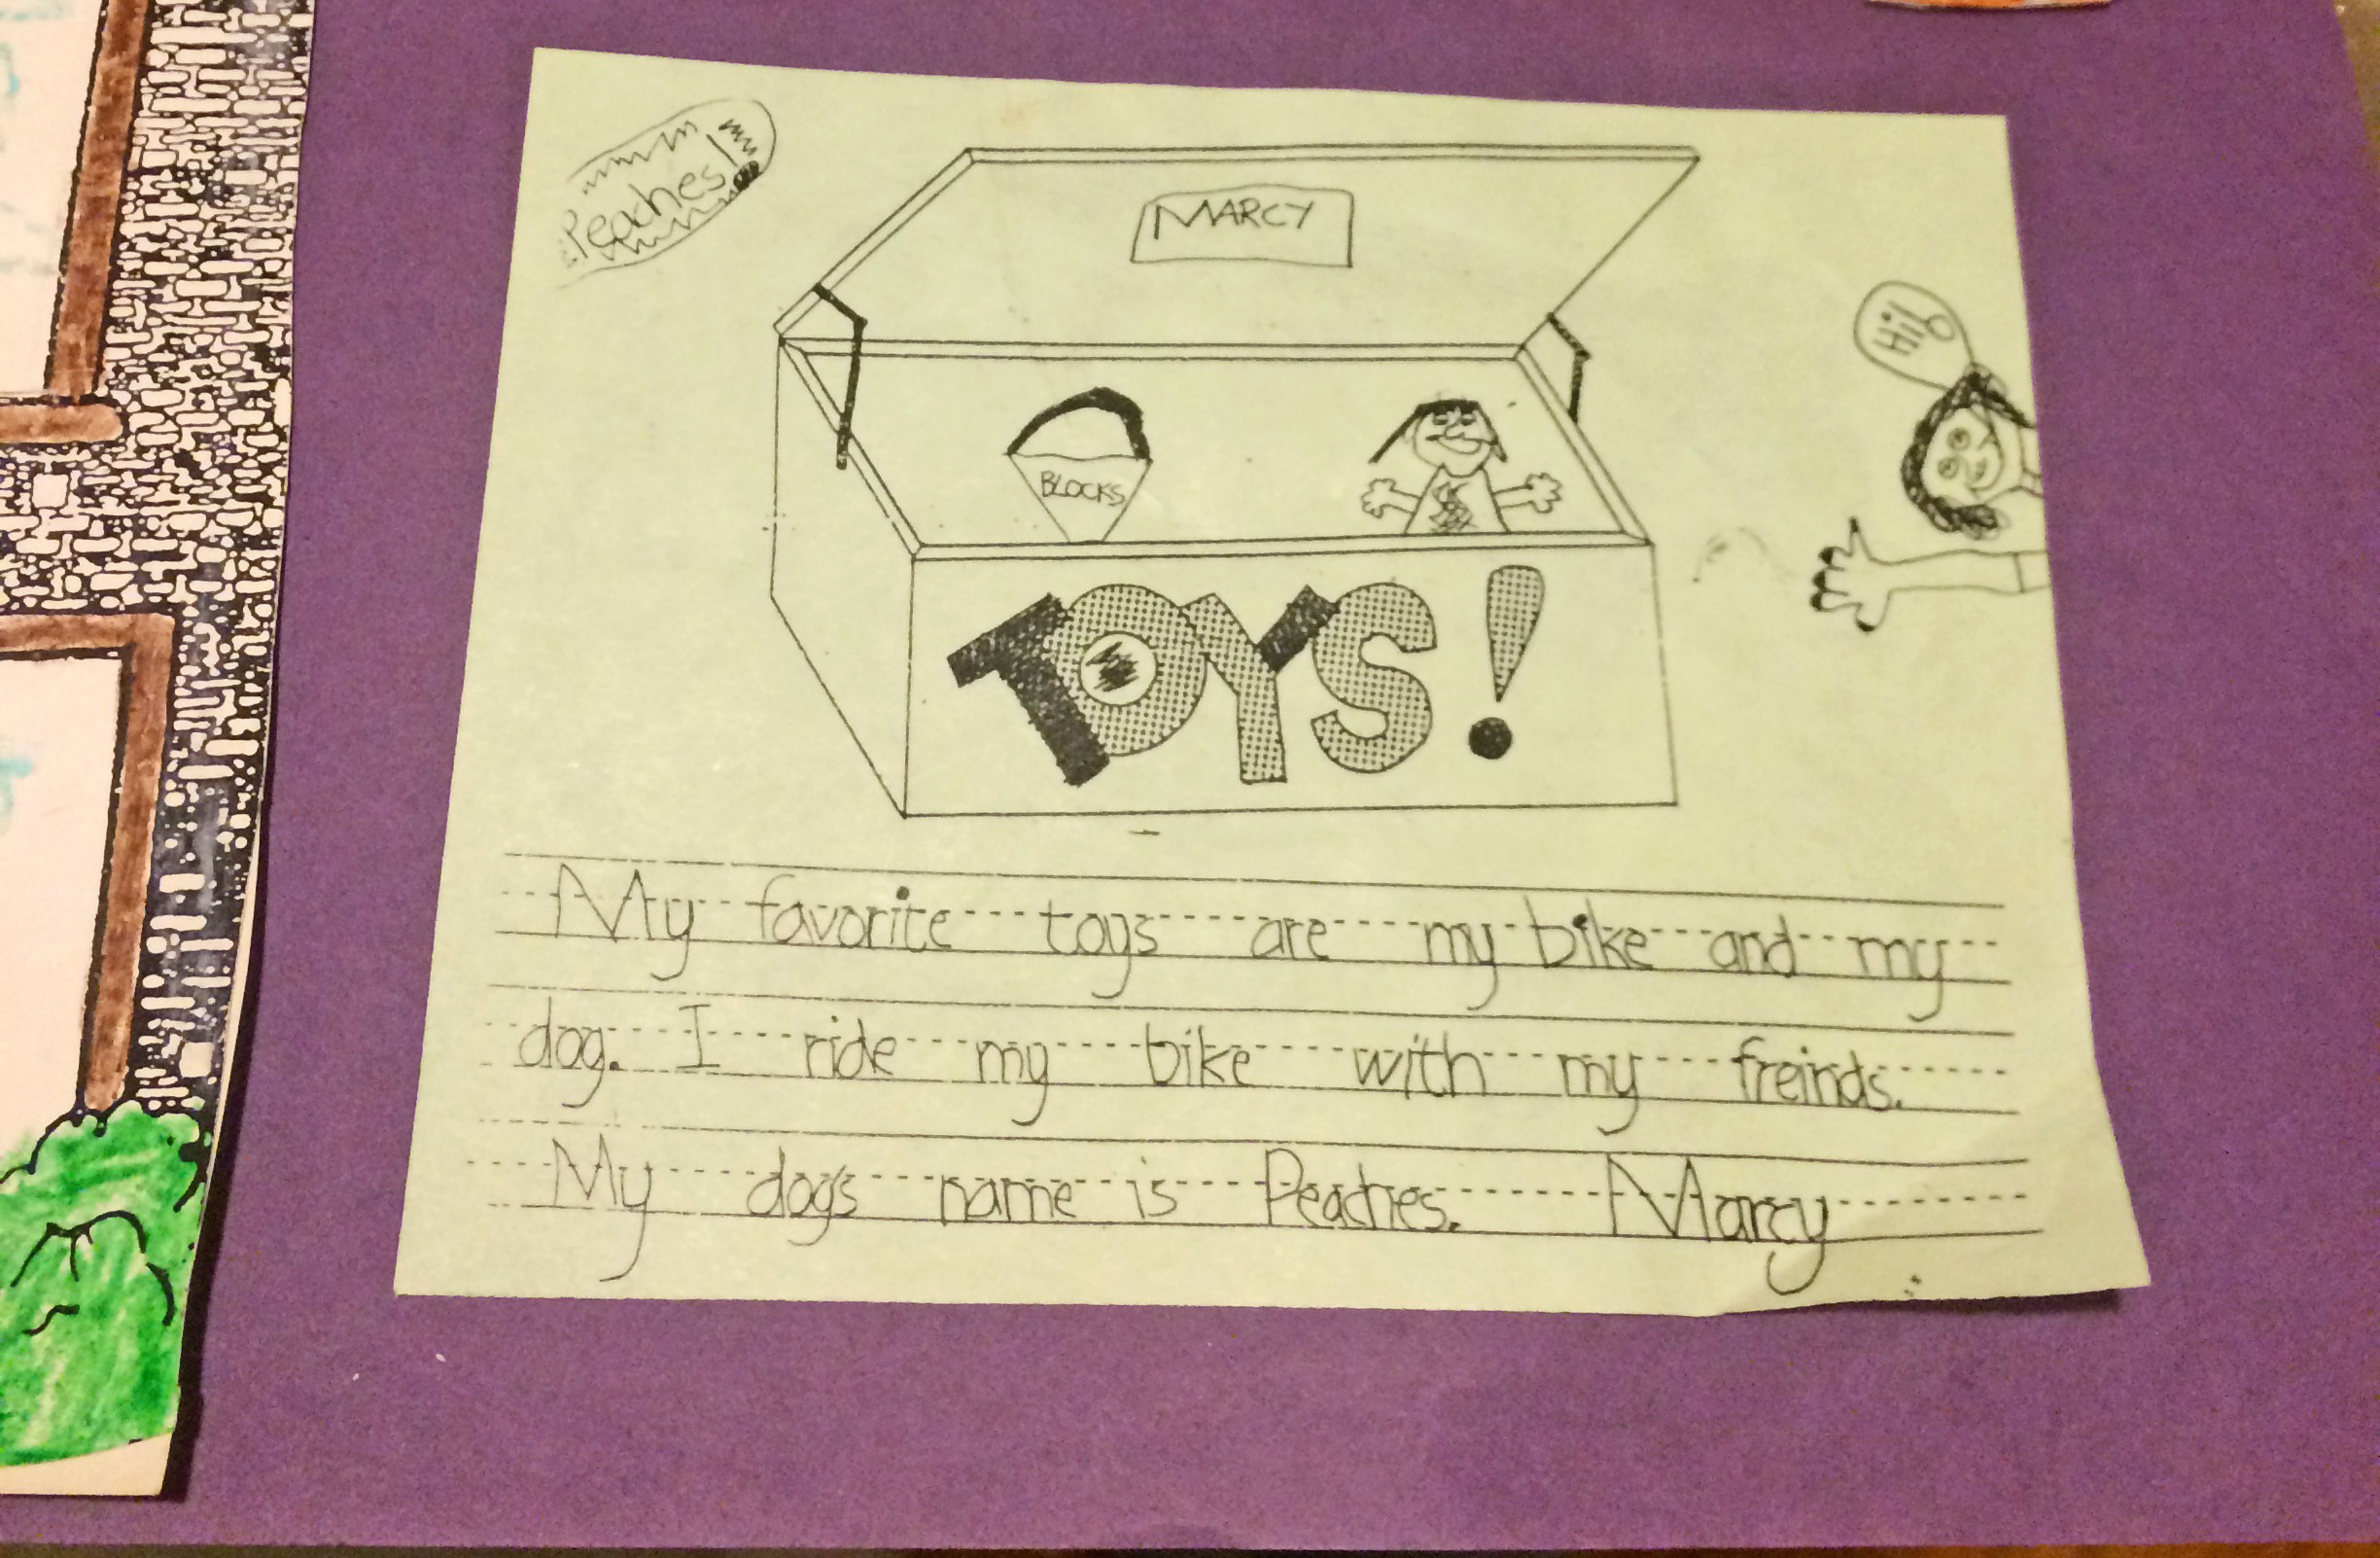 Peaches!
MARCY
Hi!
BLOCKS
TOYS!
My favorite toys are my bike and my
dog. I ride my bike with my freinds.
My dog's name is Peaches. Marcy